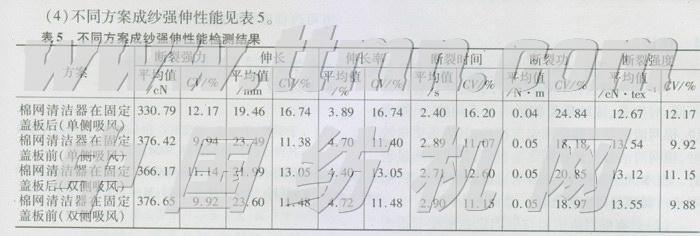 (4)不同方案成纱强伸性能见表5。
表5 不同方案成纱强伸性能检测结果
方案 断裂强力 伸长 伸长率 断裂时间 断裂功 断裂强度
平均值/cN CV/% 平均值/mm CV/% 平均值/% CV/% 平均值/s CV/% 平均值/N·m CV/% 平均值/cN·tex⁻¹ CV/%
棉网清洁器在固定盖板后(单侧吸风) 330.79 12.17 19.46 16.74 3.89 16.74 2.40 16.20 0.04 24.84 12.67 12.17
棉网清洁器在固定盖板前(单侧吸风) 376.42 9.94 23.49 11.38 4.70 11.40 2.89 11.07 0.05 18.18 13.54 9.92
棉网清洁器在固定盖板后(双侧吸风) 366.17 11.14 21.99 13.05 4.40 13.05 2.71 12.60 0.05 20.85 13.12 11.15
棉网清洁器在固定盖板前(双侧吸风) 376.65 9.92 23.60 11.48 4.72 11.48 2.90 11.15 0.05 18.97 13.55 9.88
中国纺机网